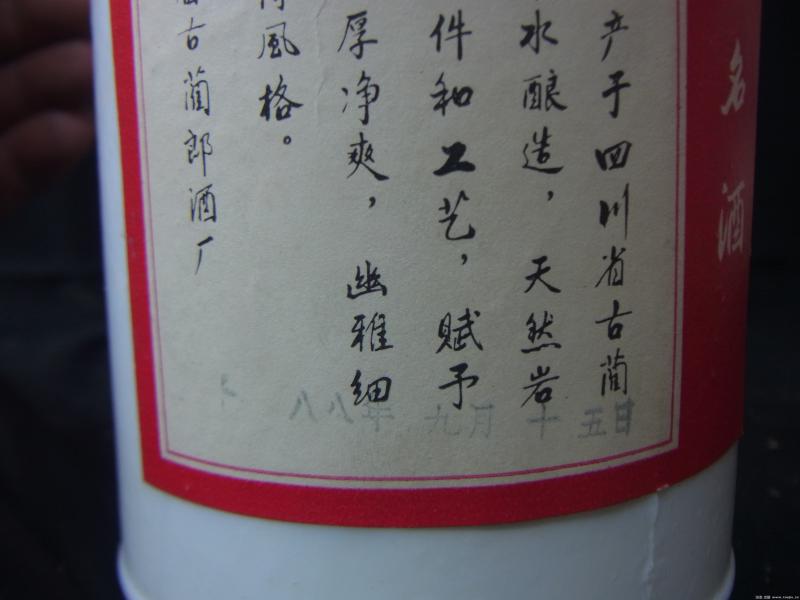 名酒
产于四川省古蔺
水酿造，天然岩
件和工艺，赋予
厚净爽，幽雅细
風格。
古蔺郎酒厂
八八年 九月 十五日